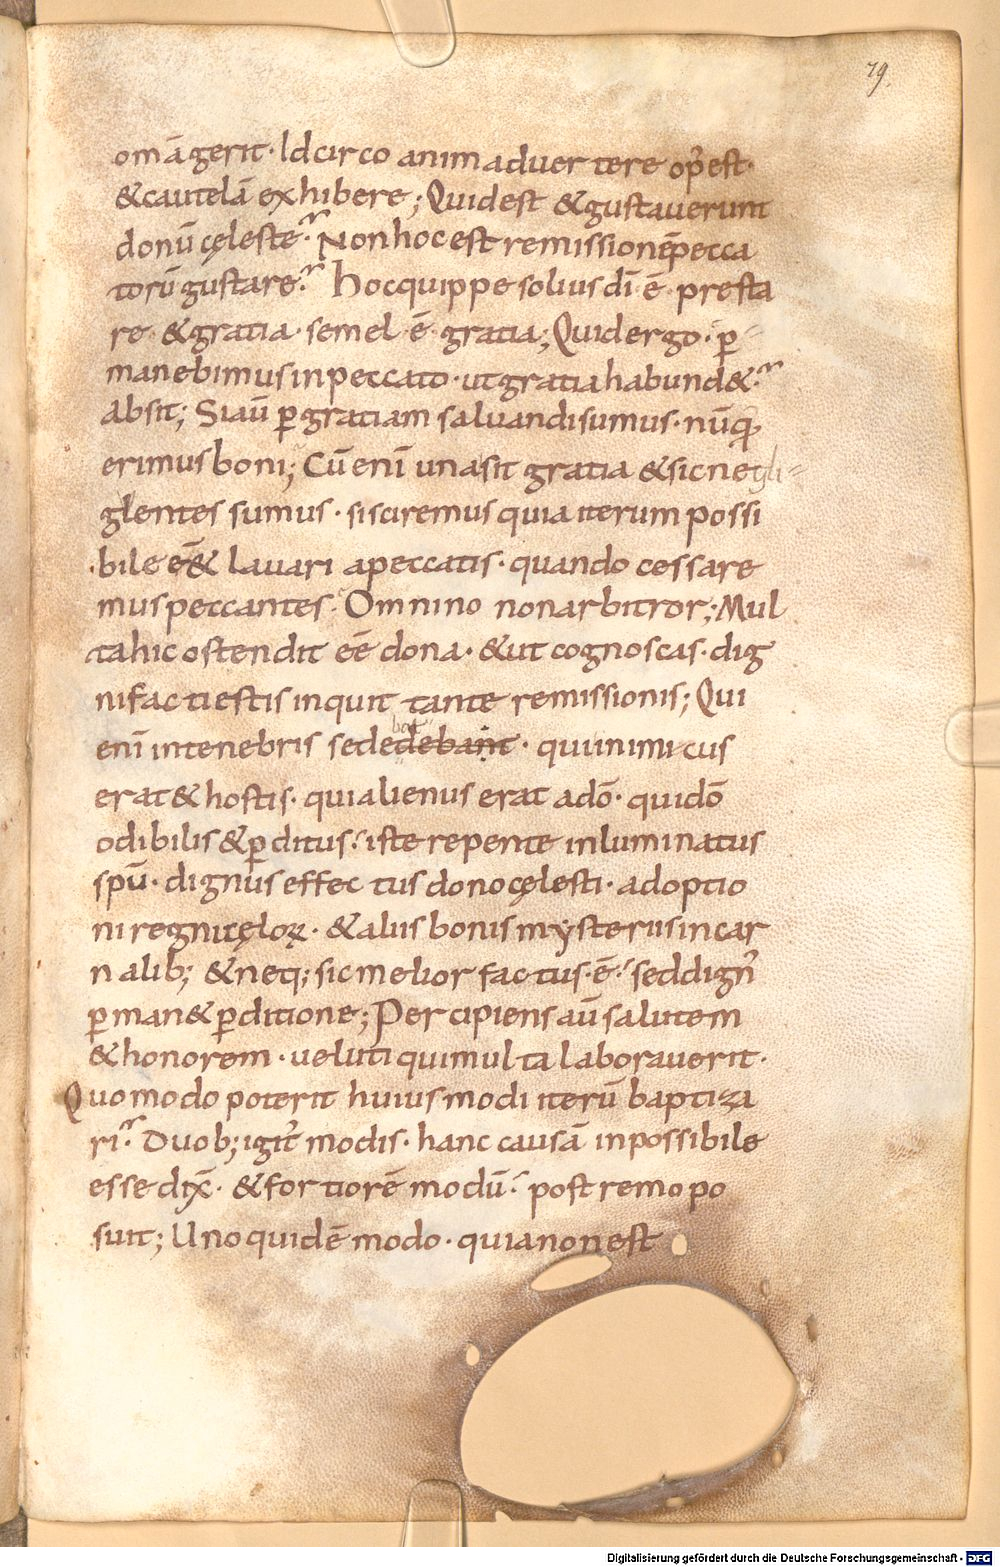 79.
omā gerit· Idcirco animaduertere op̄ est·
& cautelā exhibere; Quid est & gustauerunt
donū cęleste? Non hoc est remissionē pecca
torū gustare? Hoc quippe solius dī ē· presta
re· & gratia· semel ē· gratia; Quid ergo· p̱
manebimus in peccato· ut gratia habund&?
Absit; Si aū p̱ gratiam saluandi sumus· nūq̄
erimus boni; Cū enī una sit gratia & sic negli-
glentes sumus· si sciremus quia iterum possi
bile eē & lauari a peccatis· quando cessare
mus peccantes· Omnino non arbitror; Mul
ta hic ostendit eē dona· & ut cognoscas· dig
ni facti estis inquit tante remissionis; Qui
enī in tenebris sededebant bat· qui inimicus
erat & hostis· qui alienus erat a dō· qui dō
odibilis & p̱ditus· iste repente inluminatus
spū· dignus effectus dono cęlesti· adoptio
ni regni cęloꝝ· & aliis bonis mysteriis incar
nalib; & neq; sic melior factus ē· sed dign̄
p̱man& p̱ditione; Percipiens aū salutem
& honorem· ueluti qui multa laborauerit·
Quomodo poterit huiusmodi iterū baptiza
ri? Duob; igit̄ modis· hanc causā inpossibile
esse dix̄· & fortiorē modū· postremo po
suit; Uno quidē modo· quia non est
Digitalisierung gefördert durch die Deutsche Forschungsgemeinschaft - DFG